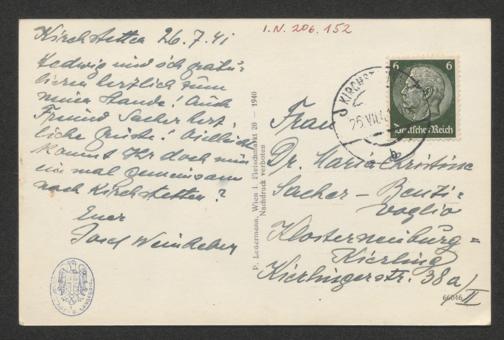 Kirchstetten 26.7.41
Hedwig und ich gratu-
lieren herzlich zum
neuen Stande! Auch
Freund Sacher herz-
liche Grüße! Vielleicht
kommt Ihr doch nun
einmal gemeinsam
nach Kirchstetten?
Euer
Josef Weinheber
P. Ledermann, Wien I. Fleischmarkt 20 — 1940
Nachdruck verboten
I.N. 206.152
6 6
Deutsches Reich
Frau
Dr. Maria Christine
Sacher - Benti-
voglio
Klosterneuburg =
Kierling
Kierlingerstr. 38a/II